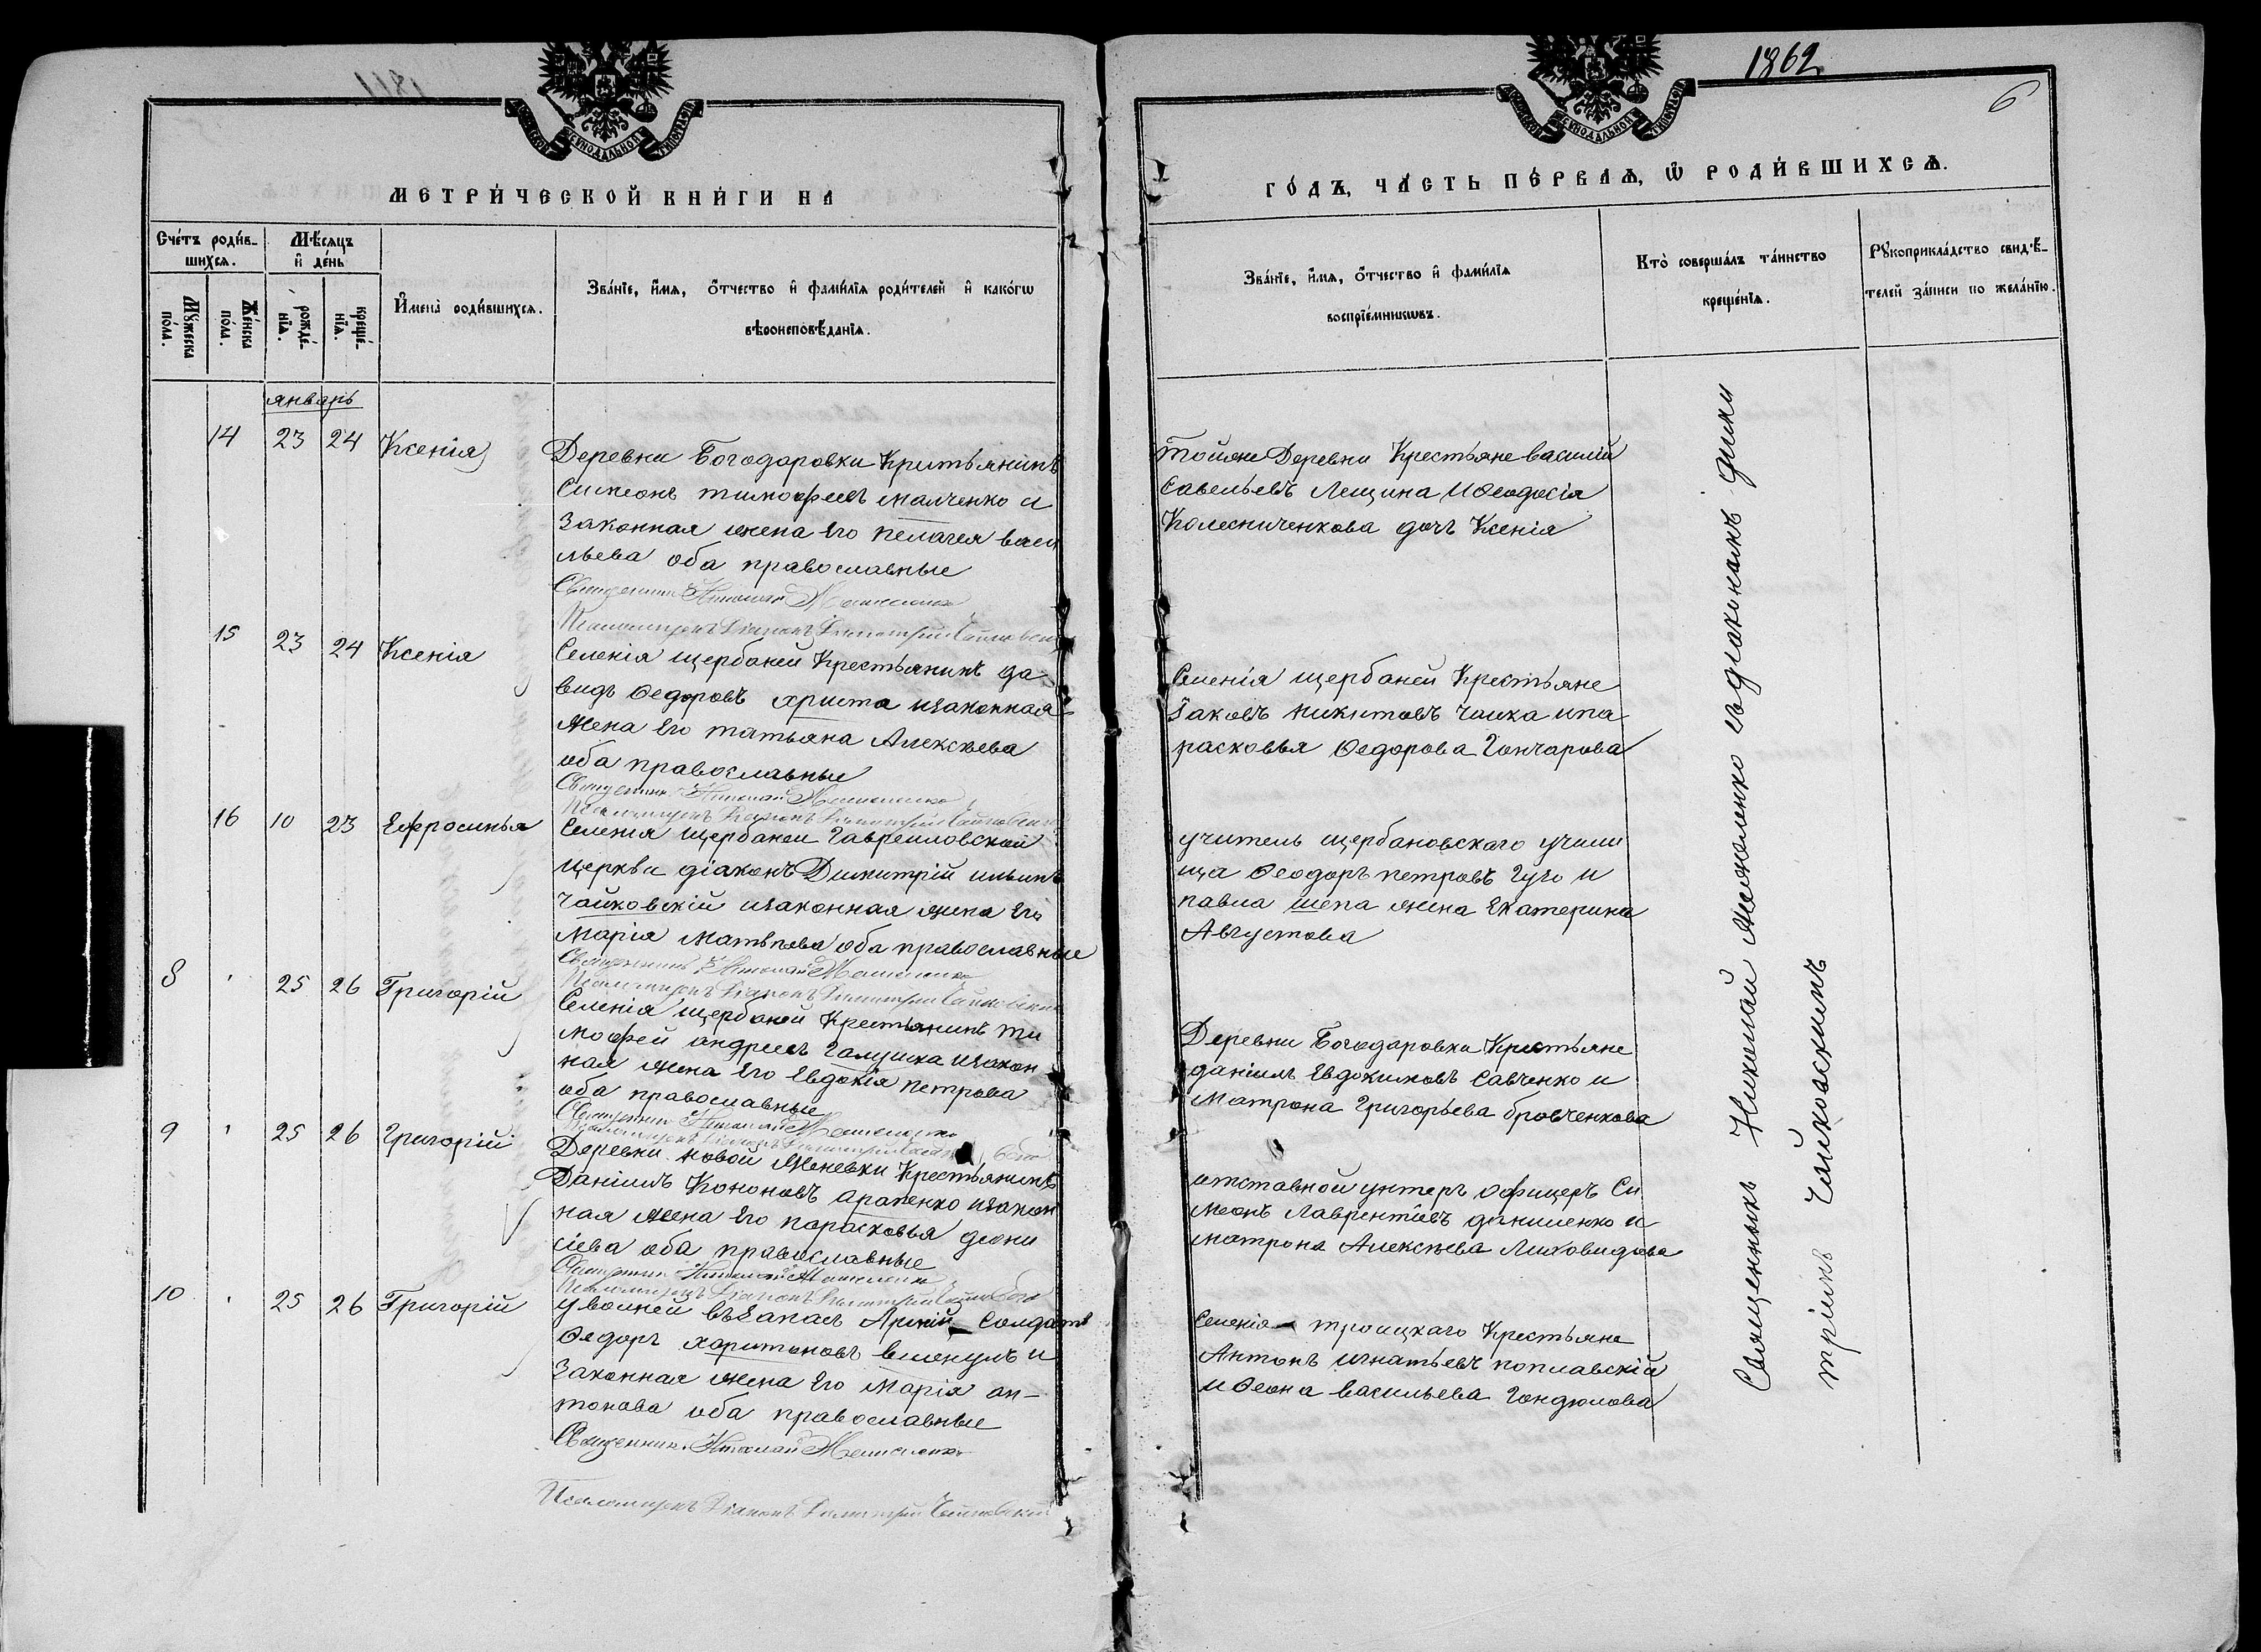 1862
6
СѴНОДАЛЬНОЙ
СѴНОДАЛЬНОЙ
МЕТРИ́ЧЕСКОЙ КНИ́ГИ НА
ГО́ДЪ, ЧА́СТЬ ПЕ́РВАѦ, Ѽ РОДИ́ВШИХСѦ.
Сче́тъ роди́в-
шихсѧ.
Мꙋ́жеска
по́ла.
Же́нска
по́ла.
Мѣ́сѧцъ
и҆ де́нь
рожде́-
нїѧ.
креще́-
нїѧ.
И҆мена̀ роди́вшихсѧ.
Зва́нїе, и҆́мѧ, ѻ҆́тчество и҆ фами́лїѧ роди́телей и҆ како́гѡ
вѣроисповѣ́данїѧ.
Зва́нїе, и҆́мѧ, ѻ҆́тчество и҆ фами́лїѧ
воспрїе́мникѡвъ.
Кто̀ соверша́лъ та́инство
креще́нїѧ.
Рꙋкоприкла́дство свидѣ́-
телей за́писи по жела́нїю.
январь
14 23 24 Ксенія
Деревни Богодаровки Кристьянинъ
Симеонъ тимофеевъ малченко и
Законная жена Его пелагея васи
льева оба православные
Священникъ Николай
Псаломщикъ Діаконъ Димитрій Чайковскій
тойже Деревни Крестьяне василій
Савельевъ Лещина и Феодосія
Колесниченкова дочь Ксенія
15 23 24 Ксенія
Селенія щербаней Крестьянинъ да
видъ Федоровъ христа изаконная
жена Его татьяна Алексѣева
оба православные
Священникъ Николай
Псаломщикъ Діаконъ Димитрій Чайковскій
Селенія щербаней Крестьяне
Іаковъ никитовъ чайка ипа
расковья Федорова Гончарова
16 10 23 Ефросинья
Селенія щербаней Гавреиловской
церкви діаконъ Димитрій ильинъ
Чайковскій изаконная жена Его
Марія Матѣѣва оба православные
Священникъ Николай
Псаломщикъ Діаконъ Димитрій Чайковскій
учитель щербановскаго учили
ща Феодоръ петровъ и
павла шепа жена Екатерина
Августова
8 25 26 Григорій
Селенія щербаней Крестьянинъ ти
мофей андреевъ Галушка изакон
ная жена Его Евдокія петрова
оба православные
Священникъ Николай
Псаломщикъ Діаконъ Димитрій
Деревни Богодаровки Крестьяне
даніилъ Евдокимовъ Савченко и
Матрона Григорьева бровченкова
9 25 26 Григорій
Деревни новой Женевки Крестьянинъ
Даніилъ Кононовъ арапенко изакон
ная жена Его парасковья діони
сіева оба православные
Священникъ Николай
Псаломщикъ Діаконъ Димитрій
отставной унтеръ офицеръ Си
меонъ Лаврентіевъ даниленко и
матрона Алексѣева Лиховидова
10 25 26 Григорій
уволней въЗапасъ Арміи Солдатъ
Федоръ харитоновъ и
Законная жена Его Марія ан-
тонова оба православные
Священникъ Николай
Псаломщикъ Діаконъ Димитрій Чайковскій
Селенія троицкаго Крестьяне
Антонъ игнатьевъ поплавскій
и Феона васильева Гондюлова
Священникъ Николай съдіакономъ дими
тріимъ Чайковскимъ